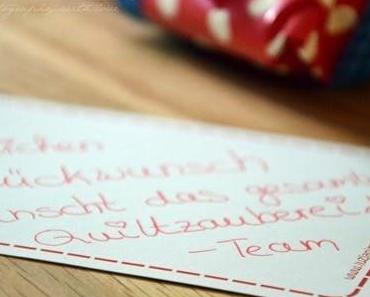 ichen
ückwunsch
nscht das gesamt
Quiltzauberei.
-Team